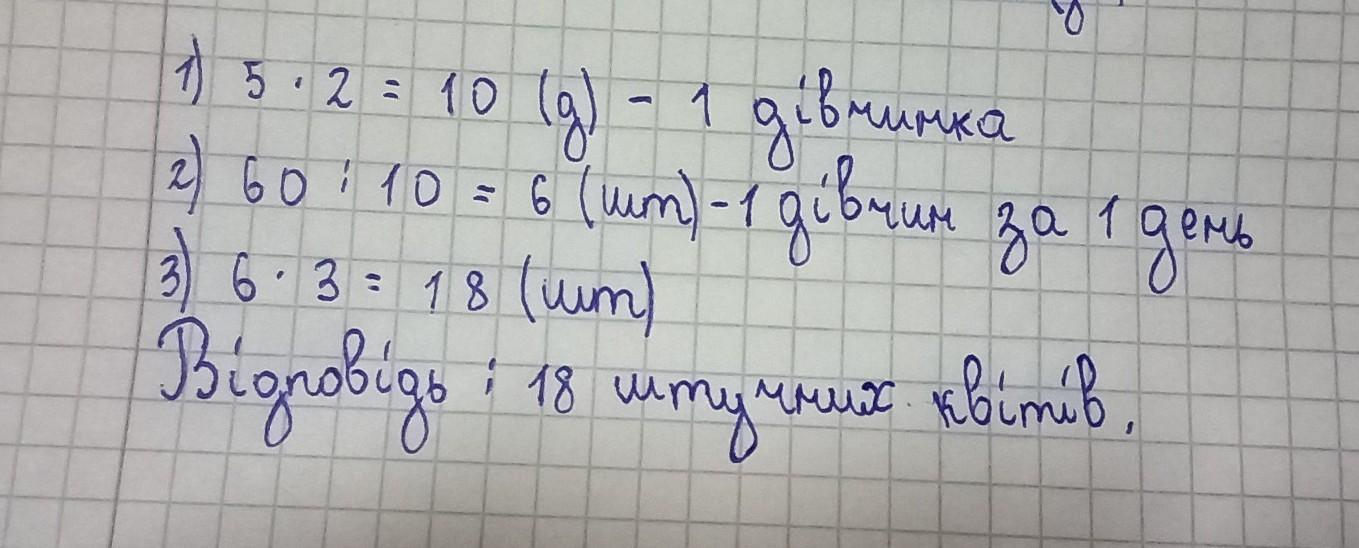 1) 5 · 2 = 10 (д) - 1 дівчинка
2) 60 : 10 = 6 (шт) - 1 дівчин за 1 день
3) 6 · 3 = 18 (шт)
Відповідь : 18 штучних квітів.